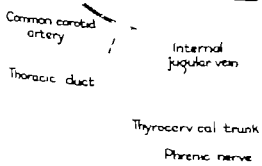 Common carotid
artery
Internal
jugular vein
Thoracic duct
Thyrocerv cal trunk
Phrenic nerve